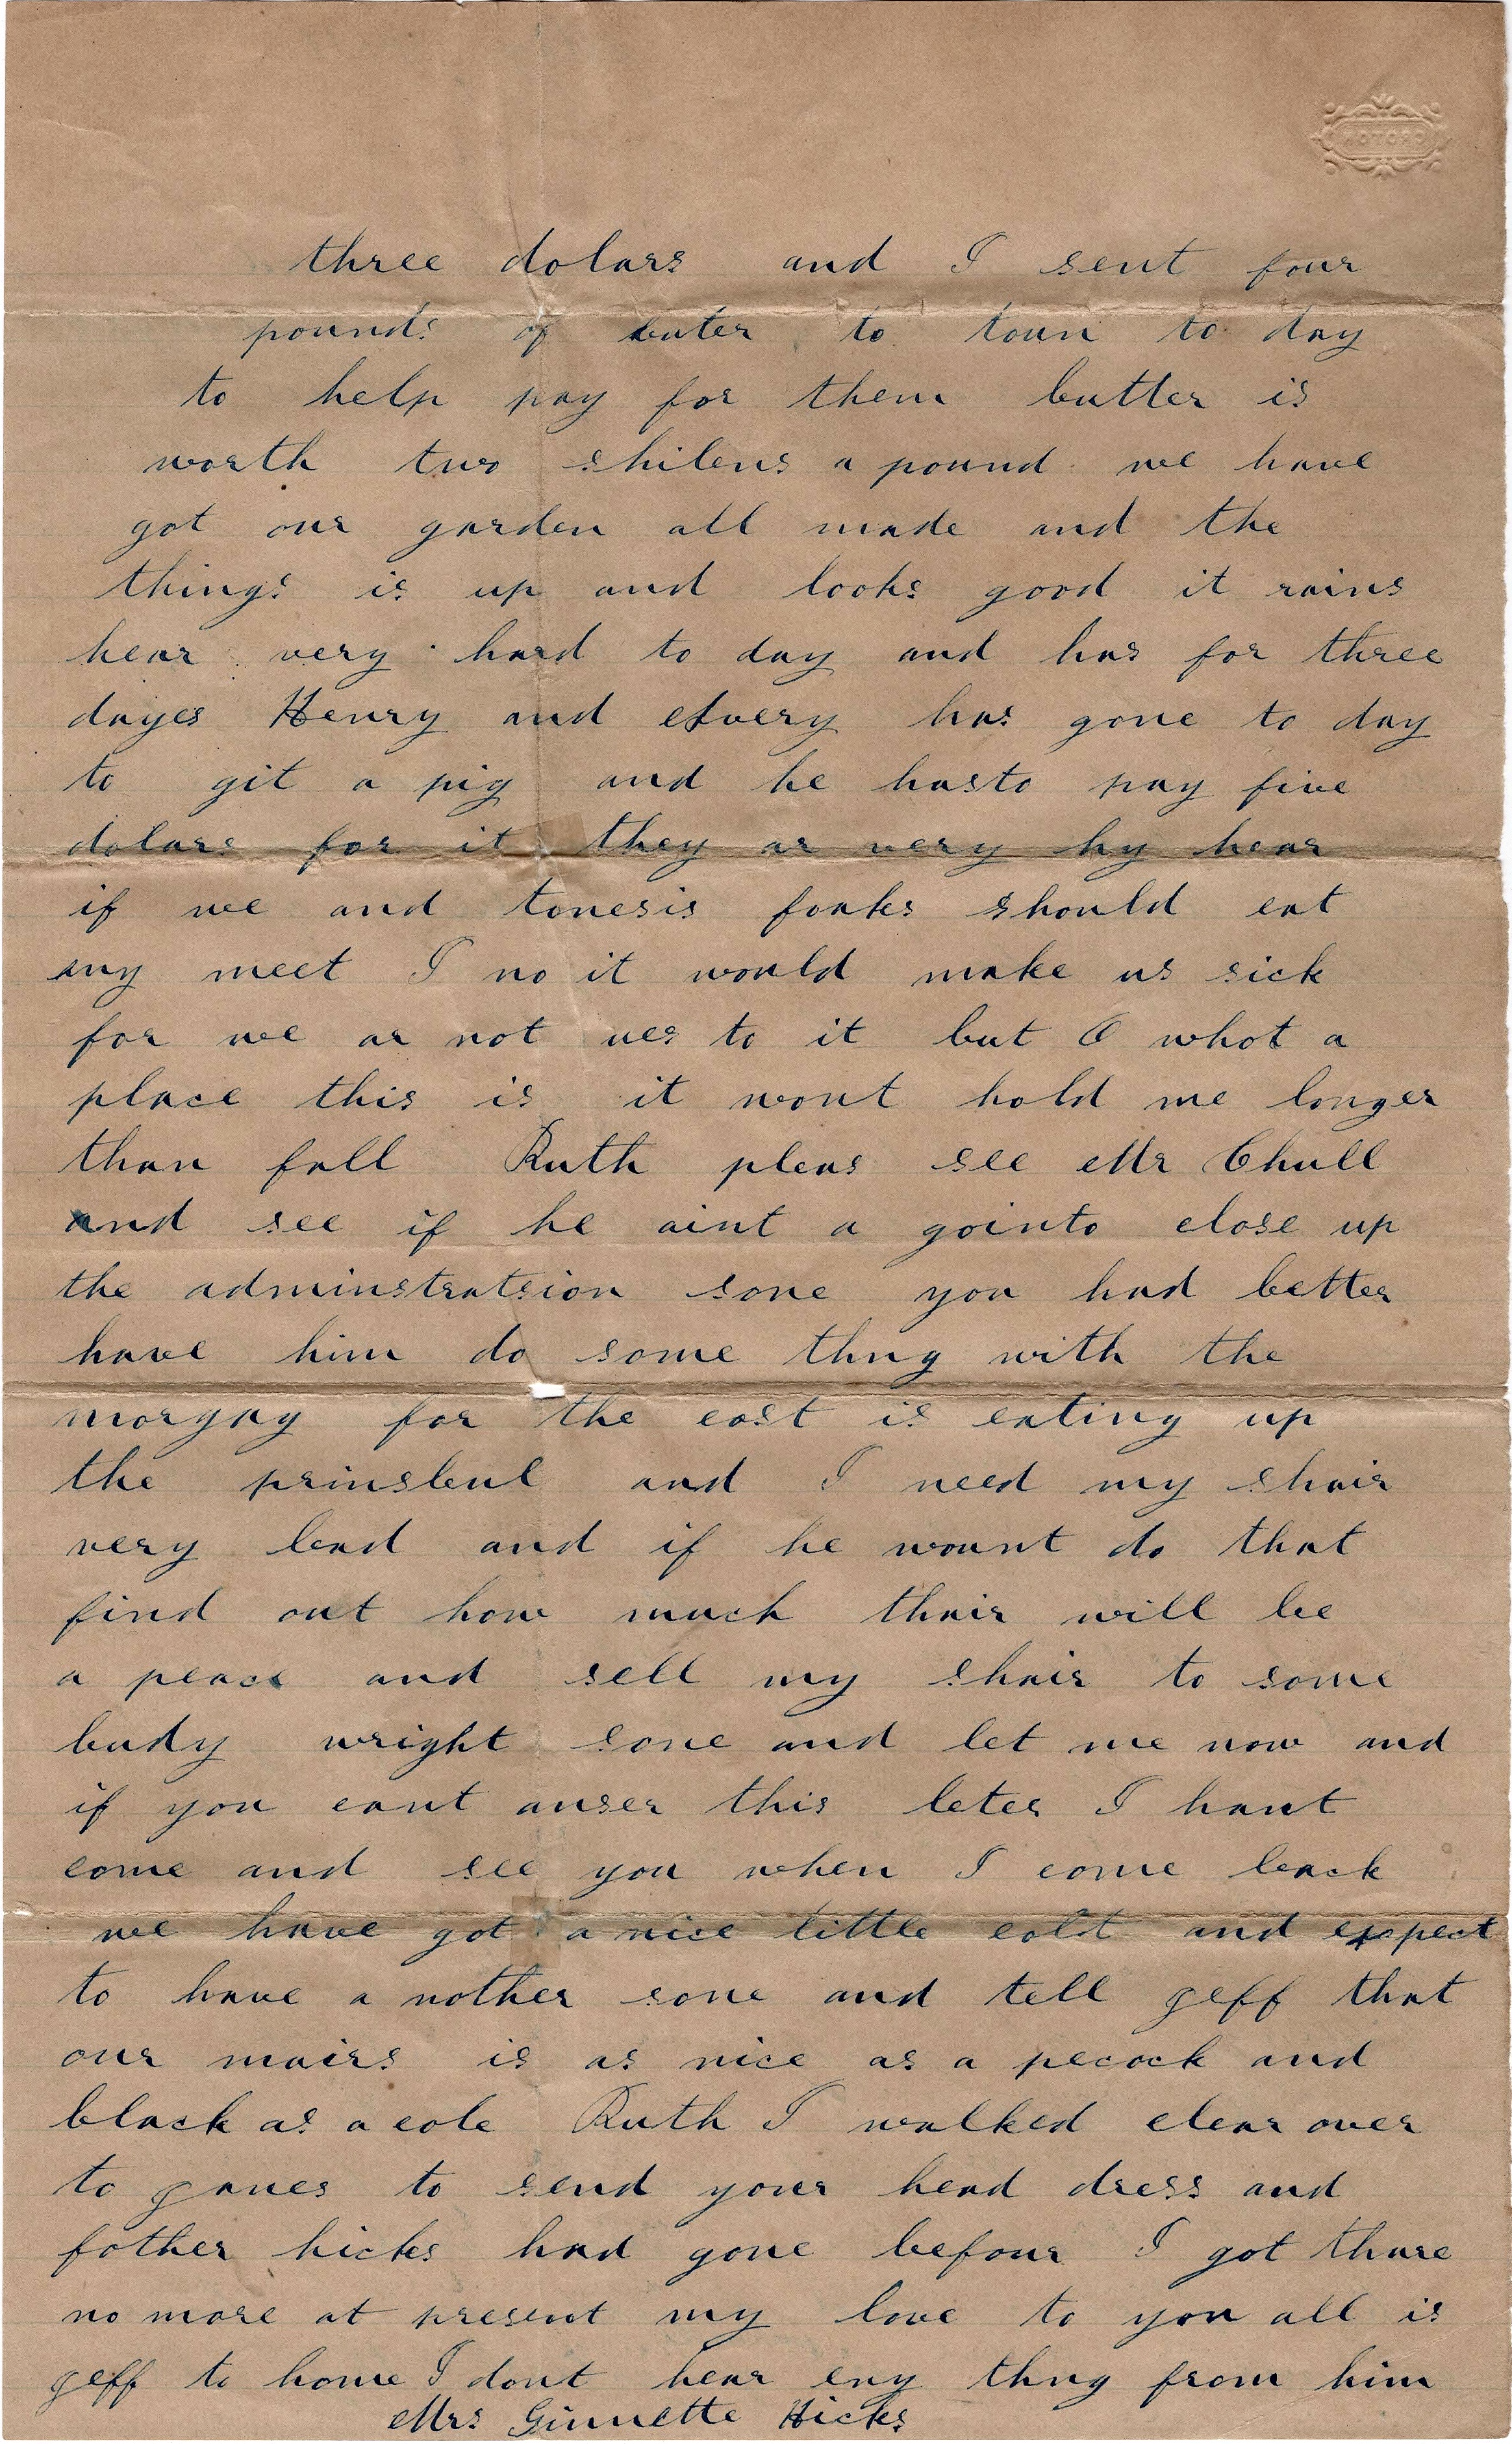 three dolars and I sent four
pounds of buter to toun to day
to help pay for them butter is
worth two shilens a pound we have
got our garden all made and the
things is up and looks good it rains
hear very hard to day and has for three
dayes Henry and Avery has gone to day
to git a pig and he hasto pay five
dolars for it they ar very hy hear
if we and tonesis foaks should eat
any meet I no it would make us sick
for we ar not ues to it but O whot a
place this is it wont hold me longer
than fall Ruth pleas see Mr Chull
and see if he aint a gointo close up
the adminstratsion sone you had better
have him do some thng with the
morgay for the cost is eating up
the prinsbul and I need my shair
very bad and if he wount do that
find out how much thair will be
a peace and sell my shair to some
budy wright sone and let me now and
if you cant anser this leter I hant
come and see you when I come back
we have got a nice little colt and expect
to have a nother sone and tell geff that
our mairs is as nice as a pecock and
black as a cole Ruth I walked clear over
to ganes to send your head dress and
father hicks had gone befour I got thare
no more at present my love to you all is
geff to home I dont hear eny thng from him
Mrs Ginnette Hicks